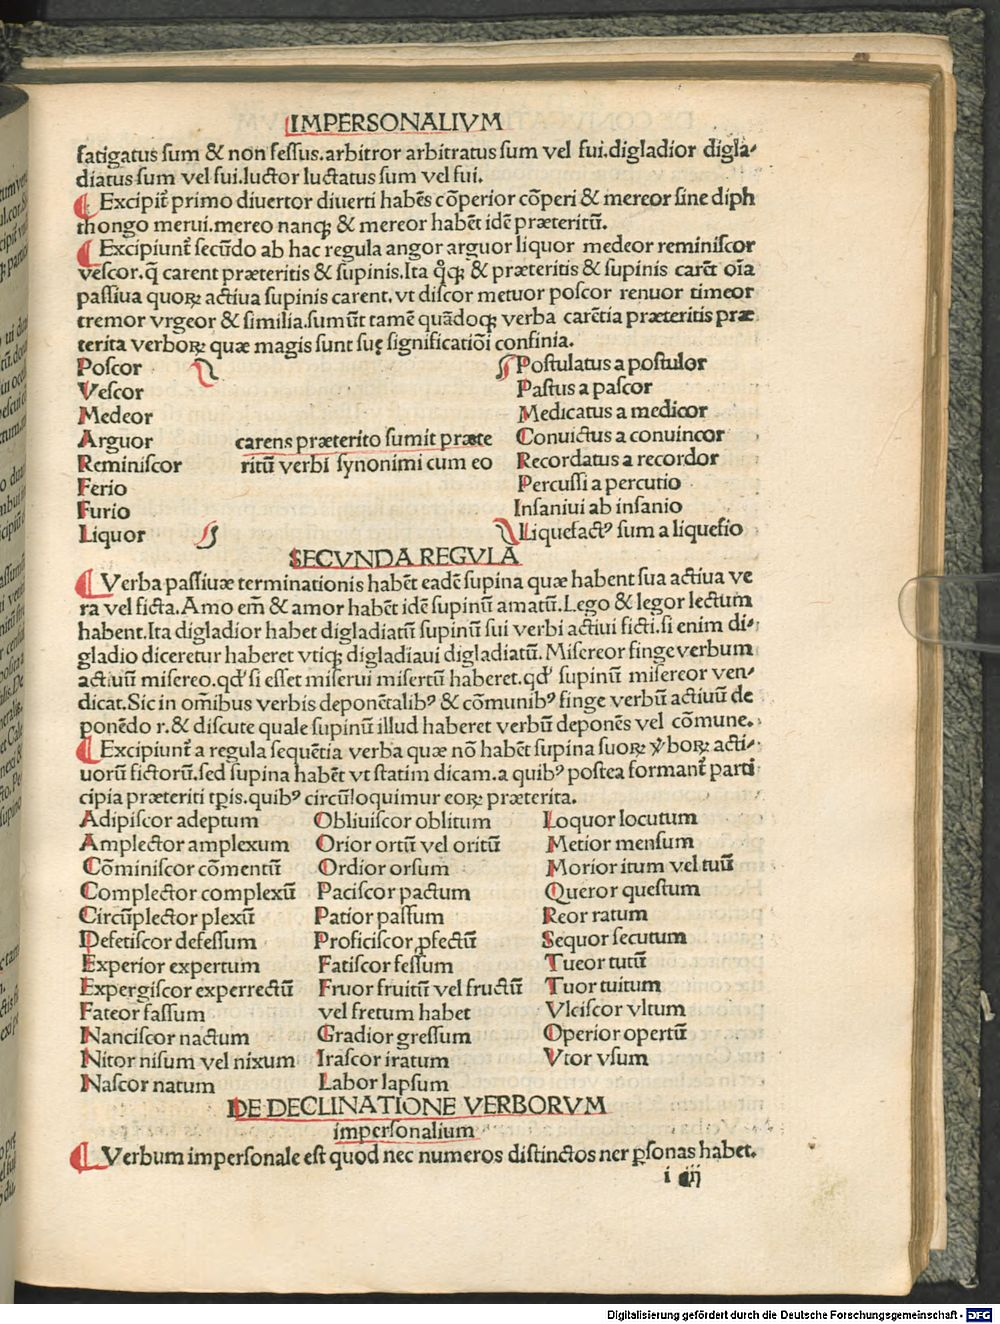 IMPERSONALIVM
fatigatus sum & non fessus.arbitror arbitratus sum vel fui.digladior digla-
diatus sum vel fui.luctor luctatus sum vel fui.
¶ Excipiūt̄ primo diuertor diuerti habēs cōperior cōperi & mereor sine diph
thongo merui.mereo nanqꝫ & mereor habēt idē præteritū.
¶ Excipiunt̄ secūdo ab hac regula angor arguor liquor medeor reminiscor
vescor.q̄ carent præteritis & supinis.Ita q̊qꝫ & præteritis & supinis carēt oīa
passiua quoꝝ actiua supinis carent.vt discor metuor poscor renuor timeor
tremor vrgeor & similia.sumūt tamē quādoqꝫ verba carētia præteritis præ
terita verboꝝ quæ magis sunt suę significatiōi confinia.
Poscor
Vescor
Medeor
Arguor
Reminiscor
Ferio
Furio
Liquor
carens præterito sumit præte
ritū verbi synonimi cum eo
Postulatus a postulor
Pastus a pascor
Medicatus a medicor
Conuictus a conuincor
Recordatus a recordor
Percussi a percutio
Insaniui ab insanio
Liquefactꝰ sum a liquefio
SECVNDA REGVLA
¶ Verba passiuæ terminationis habēt eadē supina quæ habent sua actiua ve
ra vel ficta.Amo em̄ & amor habēt idē supinū amatū.Lego & legor lectum
habent.Ita digladior habet digladiatū supinū sui verbi actiui ficti.si enim di-
gladio diceretur haberet vtiqꝫ digladiaui digladiatū.Misereor finge verbum
actiuū misereo.qd' si esset miserui misertū haberet.qd' supinū misereor ven-
dicat.Sic in om̄ibus verbis deponētalibꝰ & cōmunibꝰ finge verbū actiuū de
ponēdo r.& discute quale supinū illud haberet verbū deponēs vel cōmune.
¶ Excipiunt̄ a regula sequētia verba quæ nō habēt supina suoꝝ v̓boꝝ acti-
uorū fictorū.sed supina habēt vt statim dicam.a quibꝰ postea formant̄ parti
cipia præteriti tp̄is.quibꝰ circūloquimur eoꝝ præterita.
Adipiscor adeptum
Amplector amplexum
Cōminiscor cōmentū
Complector complexū
Circūplector plexū
Defetiscor defessum
Experior expertum
Expergiscor experrectū
Fateor fassum
Nanciscor nactum
Nitor nisum vel nixum
Nascor natum
Obliuiscor oblitum
Orior ortū vel oritū
Ordior orsum
Paciscor pactum
Patior passum
Proficiscor ꝓfectū
Fatiscor fessum
Fruor fruitū vel fructū
vel fretum habet
Gradior gressum
Irascor iratum
Labor lapsum
Loquor locutum
Metior mensum
Morior itum vel tuū
Queror questum
Reor ratum
Sequor secutum
Tueor tutū
Tuor tuitum
Vlciscor vltum
Operior opertū
Vtor vsum
DE DECLINATIONE VERBORVM
impersonalium
¶ Verbum impersonale est quod nec numeros distinctos ner ꝑsonas habet.
i iij
Digitalisierung gefördert durch die Deutsche Forschungsgemeinschaft - DFG